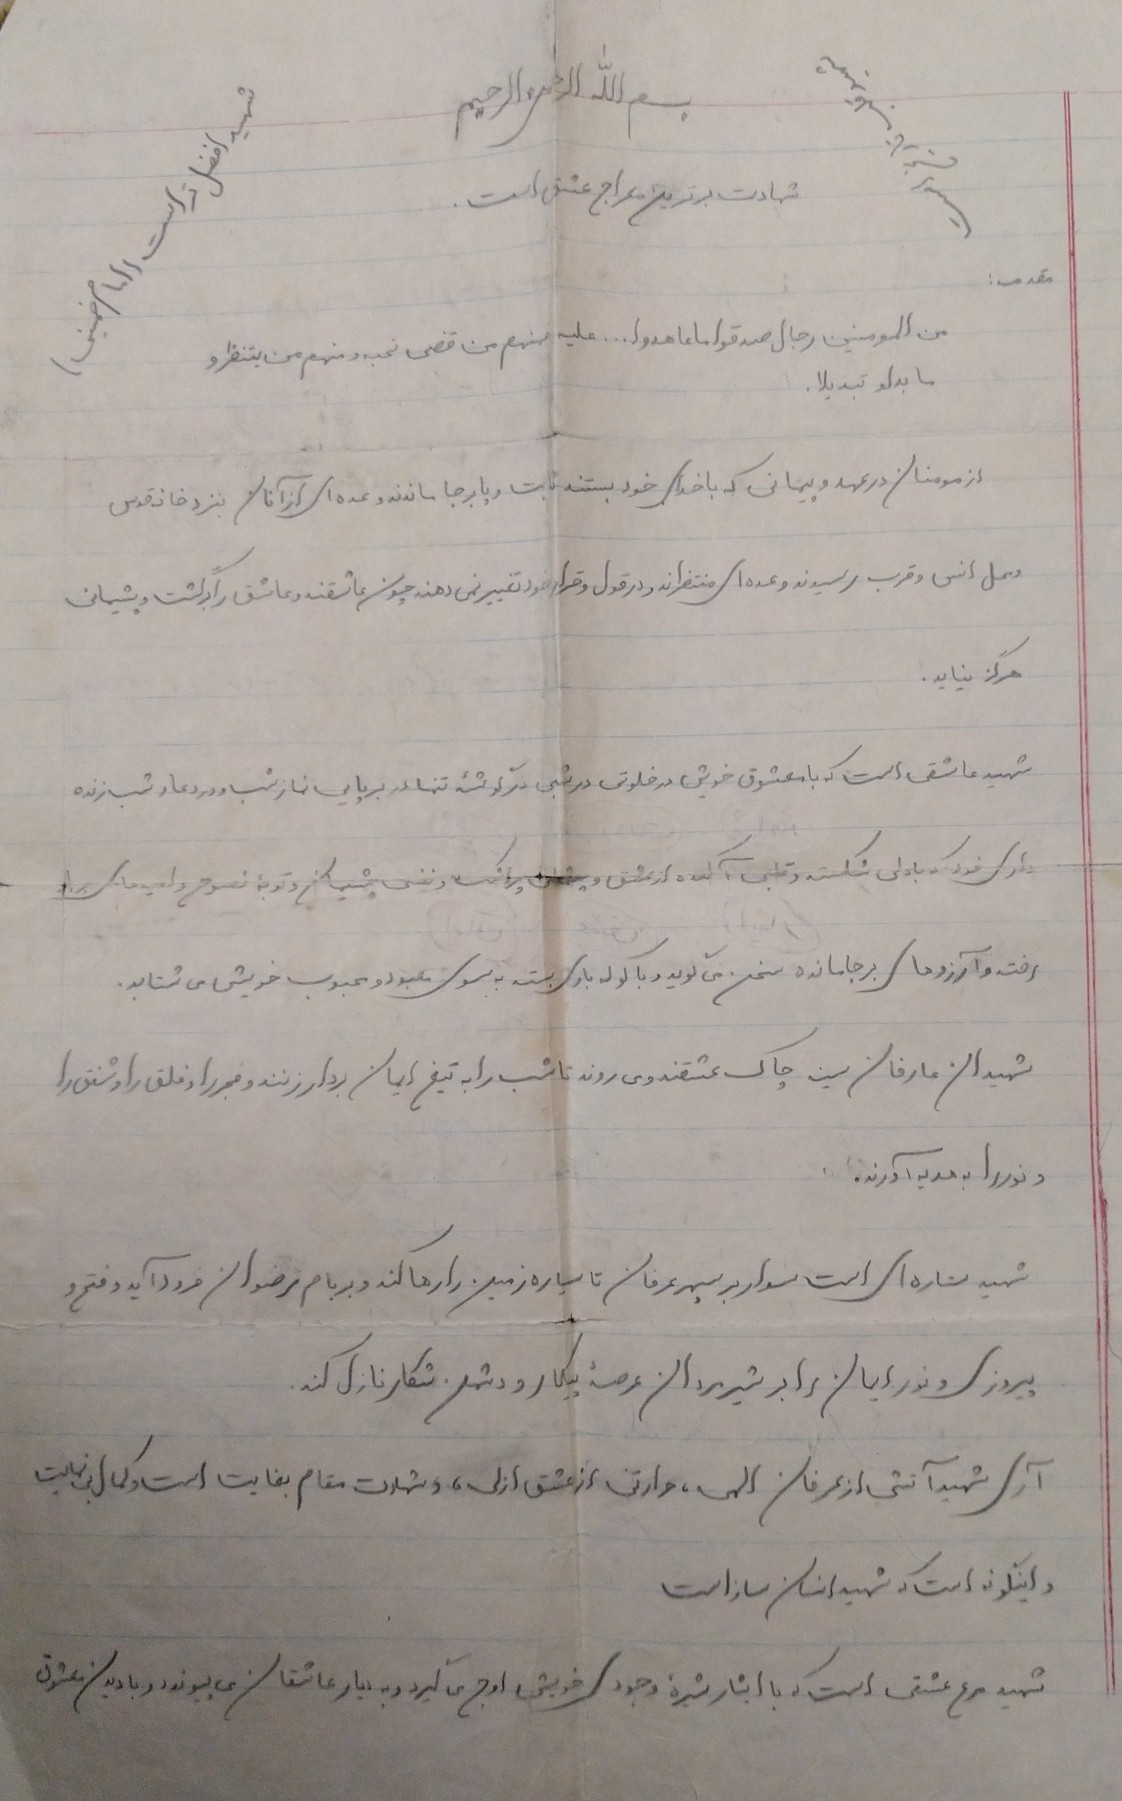 بسم الله الرحمن الرحیم
شهید افضل تر است (امام خمینی)
شهادت برترین معراج عشق است.
مقدمه:
من المومنین رجال صدقوا ما عاهدوا... علیه فمنهم من قضی نحبه و منهم من ینتظر و
ما بدلو تبدیلا.
از مومنان در عهد و پیمانی که با خدای خود بستند ثابت و پا برجا ماندند و عده ای از آنان بنزد خانه قدس
و محل انس و قرب رسیدند و عده ای منتظرند و در قول و قرار خود تغییر نمی دهند چون عاشقند و عاشق را برگشت و پشیمانی
هرگز نیاید.
شهید عاشقی است که با معشوق خویش در خلوتی در شبی در گوشۀ تنها در برپایی نماز شب و در دعا و شب زنده
داری خود که با دلی شکسته و قلبی آکنده از عشق و چشمانی پر اشک و نفسی پشیمان و توبۀ نصوح و امیدهای بر باد
رفته و آرزوهای بر جا مانده سخن می گوید و با کوله باری بسته به سوی معبود و محبوب خویش می شتابد.
شهیدان عارفان سینه چاک عشقند و می روند تا شب را به تیغ ایمان بردار زنند و فجر را و فلق را و شفق را
و نور را به هدیه آورند.
شهید ستاره ای است سوار بر سپهر عرفان تا سیاره زمین را رها کند و بر بام رضوان فرود آید و فتح و
پیروزی و نور ایمان را بر شیرمردان عرصۀ پیکار و دشمن شکار نازل کند.
آری شهید آتشی از عرفان الهی، حرارتی از عشق ازلی، و شهادت مقام بغایت است و کمال بی نهایت
و اینگونه است که شهید انسان ساز است
شهید مرغ عشقی است که با ایثار شیرۀ وجودی خویش اوج می گیرد و به دیار عاشقان می پیوندد و با دیدن معشوق